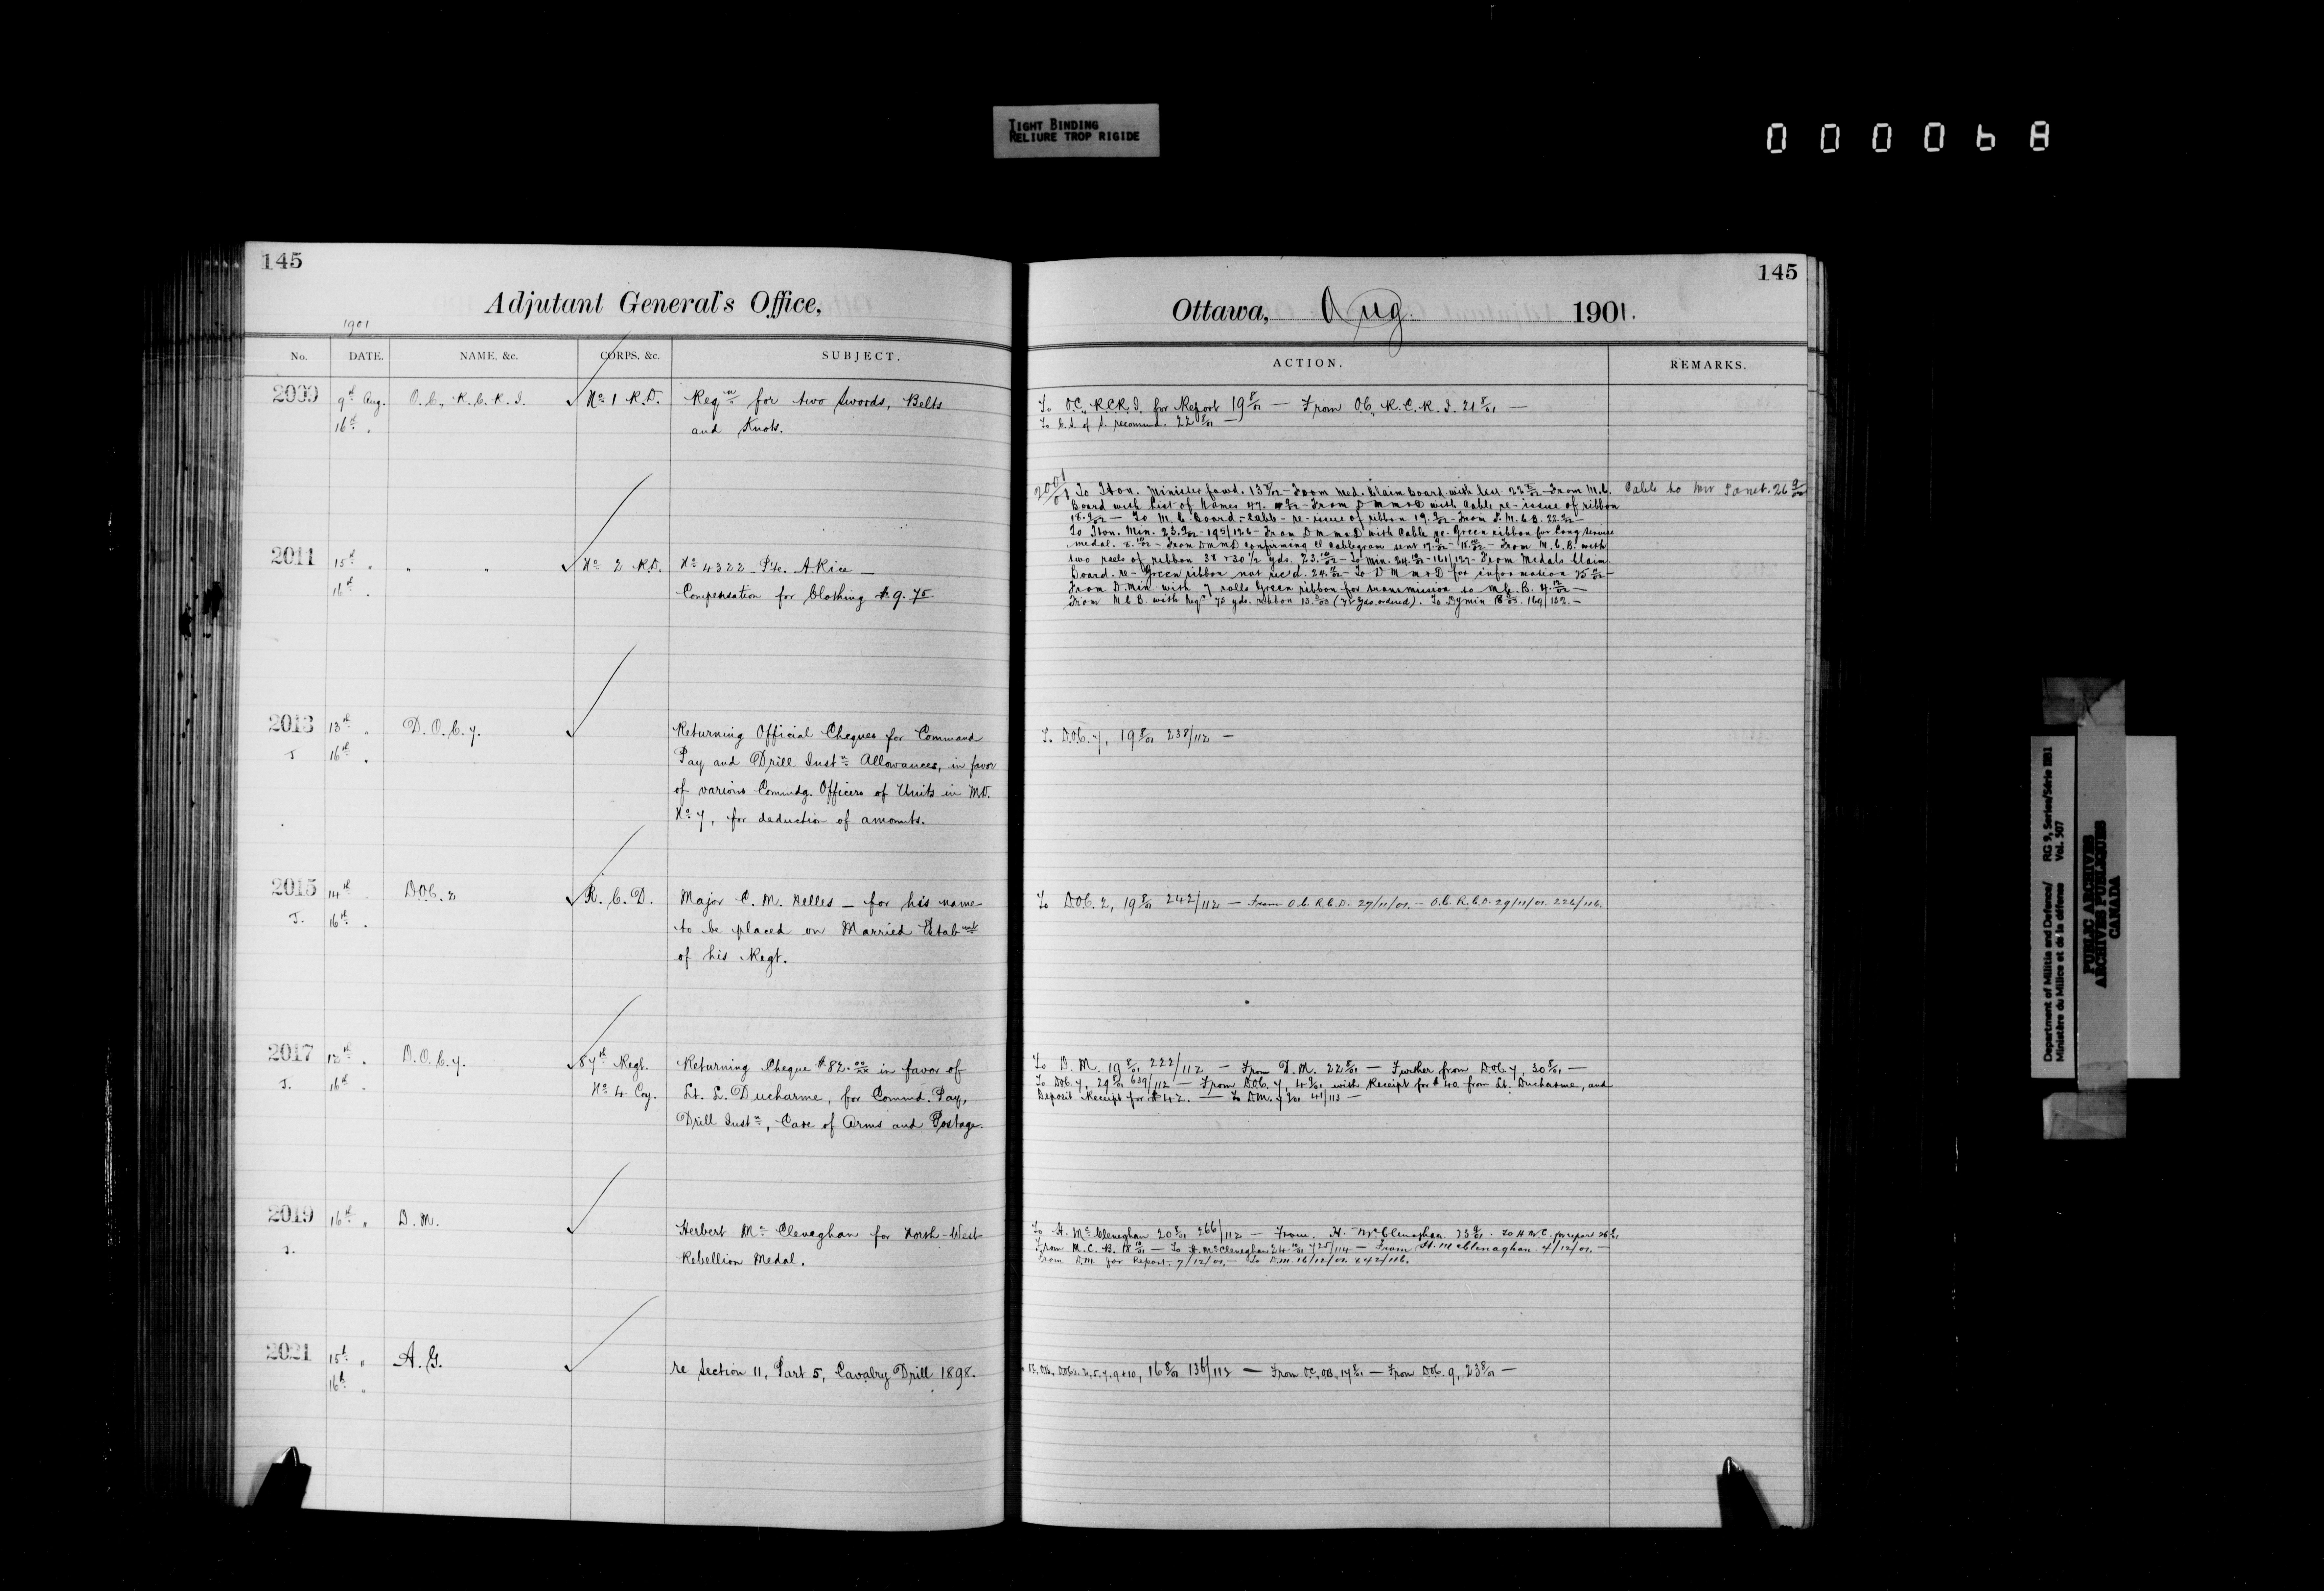 TIGHT BINDING
RELIURE TROP RIGIDE
000068
145
Adjutant General's Office,
1901
No. DATE. NAME, &c. CORPS, &c. SUBJECT.
2009 9th Aug. O.C., R.C.R.I. No 1 R.D. Reqn for two Swords, Belts
16th " and Knots.
2011 15th " " " No 2 R.D. No 4322 Pte. A Rice —
16th " Compensation for Clothing $9.75
2013 13th " D.O.C. 7. Returning Official Cheques for Command
J 16th " Pay and Drill Instn Allowances, in favor
of various Commdg. Officers of Units in M.D.
No 7, for deduction of amounts.
2015 14th " D.O.C. 2 R.C.D. Major C. M. Nelles — for his name
J. 16th " to be placed on Married Estabmt
of his Regt.
2017 12th " D.O.C. 7. 87th Regt. Returning Cheque $82.00 in favor of
J. 16th " No 4 Coy. Lt. L. Ducharme, for Commd. Pay,
Drill Instn, Care of Arms and Postage.
2019 16th " D.M. Herbert Mc Cleneghan for North-West
J. Rebellion Medal.
2021 15th " A.G. re Section 11, Part 5, Cavalry Drill 1898.
16th "
145
Ottawa, Aug. 1901.
ACTION. REMARKS.
To O.C., R.C.R.I. for Report 19 8/01 — From O.C. R.C.R.I. 21 8/01 —
To C.S. of S. recommd. 22 8/01 —
2001/01 To Hon. Minister fowd. 13 — From Med. Claim Board with 22 — From M.C. Cable to Mr
Board with List of Names 47. — From D M M & D with Cable re-issue of ribbon
18. 9/02 — To M C Board - Cable - re-issue of ribbon 19. 9/02 — From S. M.C.B. 22. 9/02 —
To Hon. Min. 23. 9/02 - 195/126 - From D M M & D with Cable re- Green ribbon for Long Service
medal. — From D M M D confirming Cablegram sent 17 — From M.C.B. with
two reels of ribbon 38 & 30 1/2 yds. 23. 10/02 — To Min. 24. 10/02 - 161/127 - From Medals Claim
Board. re- Green ribbon not rec'd. 24. — To D M M & D for information 25 —
From D. Min. with 7 rolls Green ribbon for transmission to M.C.B. 4. 12/02 —
From M.C.B. with Reqn 72 yds. ribbon 13. (72 yds. ordered). To Dy Min 169/132. —
To D.O.C. 7, 19 8/01 238/112 —
To D.O.C. 2, 19 8/01 242/112 — From O.C. R.C.D. 27/11/01. — O.C. R.C.D. 29/11/01. 226/116.
To D.M. 19 8/01 222/112 — From D.M. 22 8/01 — Further from D.O.C. 7, 30 8/01 —
To D.O.C. 7, 29 8/01 639/112 — From D.O.C. 7, 4 9/01 with Receipt for $40 from Lt. Ducharme, and
Deposit Receipt for $42. — To D.M. 7 9/01 41/113 —
To H. McCleneghan 20 8/01 266/112 — From H. McClenaghan 23 . To H McC. for report 26
From M.C.B. 18 10/01 — To H. McCleneghan 24 10/01 725/114 — From H. McClenaghan 4/12/01. —
From D.M. for Report. 7/12/01. — To D.M. 16/12/01. 842/116.
D.O.Cs. 2, 5, 7, 9 & 10, 16 8/01 136/112 — From O.C., O.B., 17 8/01 — From D.O.C. 9, 23 8/01 —
Department of Militia and Defence/ RG 9, Series/Série IIB1
Ministère du Milice et de la défense Vol. 507
PUBLIC ARCHIVES
ARCHIVES PUBLIQUES
CANADA